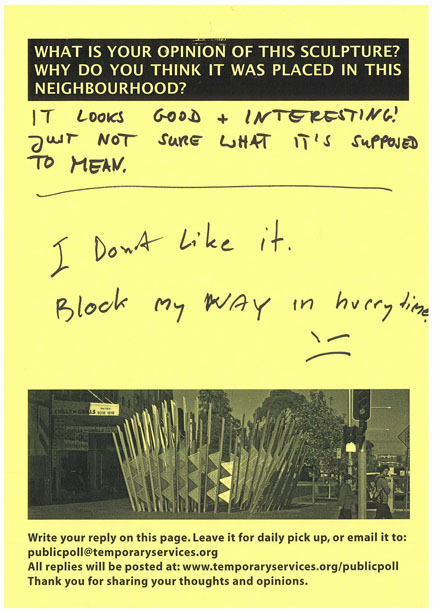 WHAT IS YOUR OPINION OF THIS SCULPTURE?
WHY DO YOU THINK IT WAS PLACED IN THIS
NEIGHBOURHOOD?
IT LOOKS GOOD + INTERESTING!
JUST NOT SURE WHAT IT'S SUPPOSED
TO MEAN.
I Dont Like it.
Block my WAY in hurry time.
Write your reply on this page. Leave it for daily pick up, or email it to:
publicpoll@temporaryservices.org
All replies will be posted at: www.temporaryservices.org/publicpoll
Thank you for sharing your thoughts and opinions.